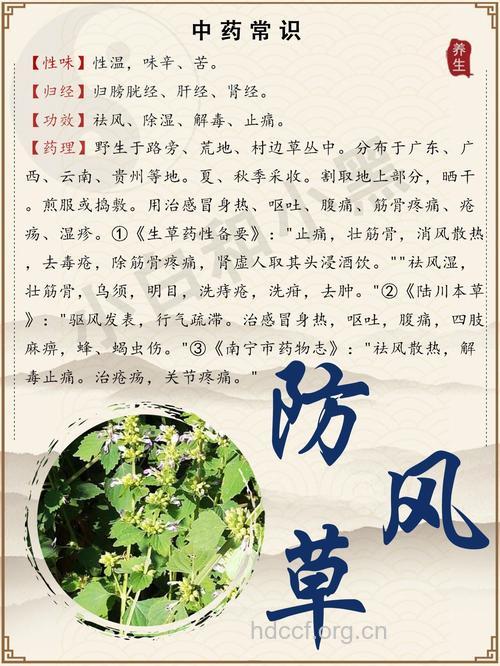 中药常识
养生
【性味】性温，味辛、苦。
【归经】归膀胱经、肝经、肾经。
【功效】祛风、除湿、解毒、止痛。
【药理】野生于路旁、荒地、村边草丛中。分布于广东、广
西、云南、贵州等地。夏、秋季采收。割取地上部分，晒干
。煎服或捣敷。用治感冒身热、呕吐、腹痛、筋骨疼痛、疮
疡、湿疹。①《生草药性备要》："止痛，壮筋骨，消风散热
，去毒疮，除筋骨疼痛，肾虚人取其头浸酒饮。""祛风湿，
壮筋骨，乌须，明目，洗痔疮，洗疳，去肿。"②《陆川本草
》："驱风发表，行气疏滞。治感冒身热，呕吐，腹痛，四肢
麻痹，蜂、蝎虫伤。"③《南宁市药物志》："祛风散热，解
毒止痛。治疮疡，关节疼痛。"
防风草
hdccf.org.cn